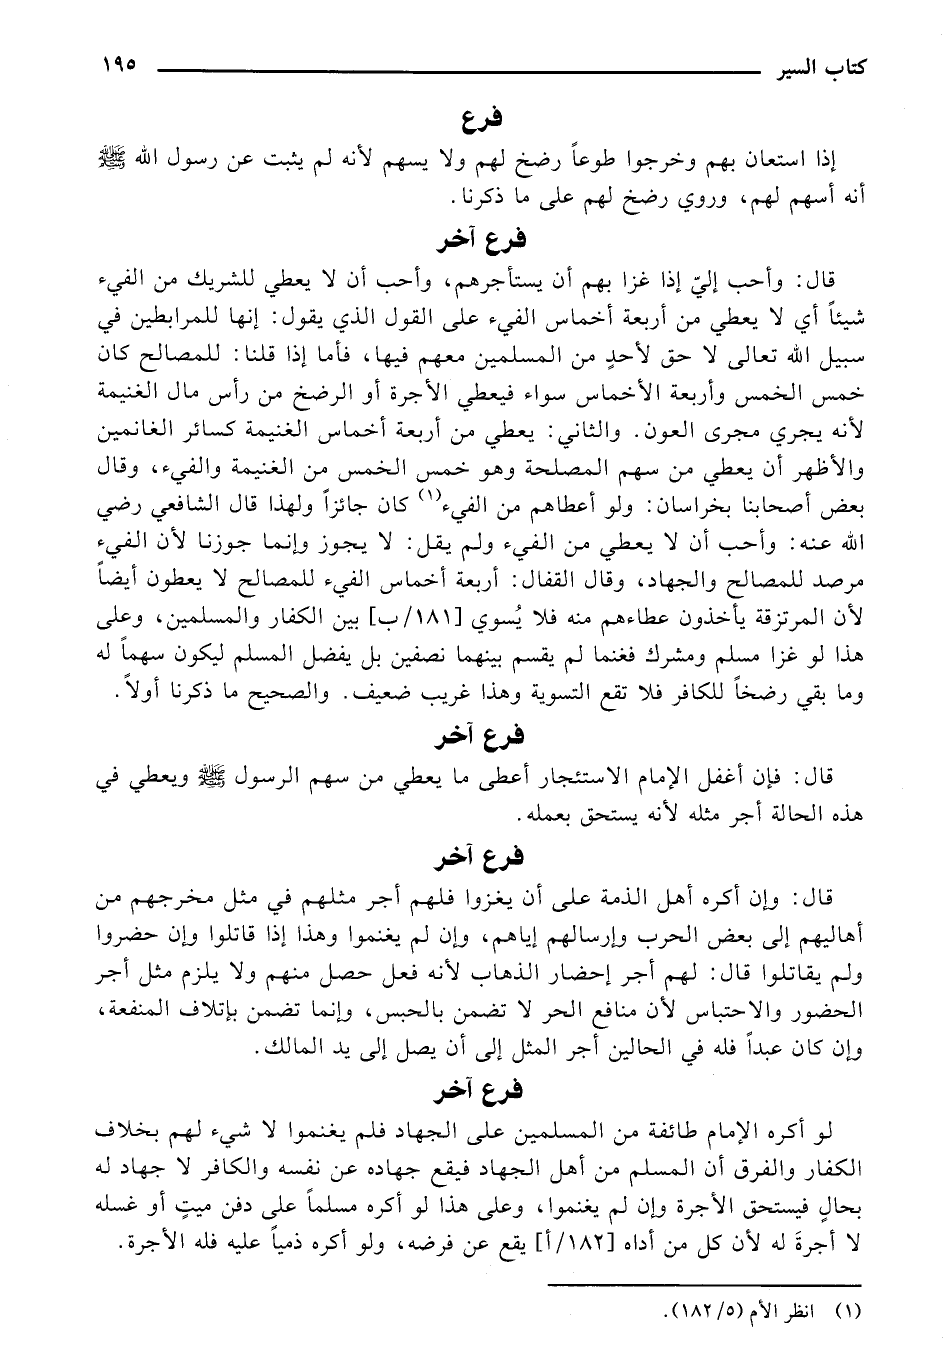 كتاب السير ١٩٥
فرع
إذا استعان بهم وخرجوا طوعاً رضخ لهم ولا يسهم لأنه لم يثبت عن رسول الله ﷺ
أنه أسهم لهم، وروي رضخ لهم على ما ذكرنا.
فرع آخر
قال: وأحب إليّ إذا غزا بهم أن يستأجرهم، وأحب أن لا يعطي للشريك من الفيء
شيئاً أي لا يعطي من أربعة أخماس الفيء على القول الذي يقول: إنها للمرابطين في
سبيل الله تعالى لا حق لأحدٍ من المسلمين معهم فيها، فأما إذا قلنا: للمصالح كان
خمس الخمس وأربعة الأخماس سواء فيعطي الأجرة أو الرضخ من رأس مال الغنيمة
لأنه يجري مجرى العون. والثاني: يعطي من أربعة أخماس الغنيمة كسائر الغانمين
والأظهر أن يعطي من سهم المصلحة وهو خمس الخمس من الغنيمة والفيء، وقال
بعض أصحابنا بخراسان: ولو أعطاهم من الفيء(١) كان جائزاً ولهذا قال الشافعي رضي
الله عنه: وأحب أن لا يعطي من الفيء ولم يقل: لا يجوز وإنما جوزنا لأن الفيء
مرصد للمصالح والجهاد، وقال القفال: أربعة أخماس الفيء للمصالح لا يعطون أيضاً
لأن المرتزقة يأخذون عطاءهم منه فلا يُسوي [١٨١/ب] بين الكفار والمسلمين، وعلى
هذا لو غزا مسلم ومشرك فغنما لم يقسم بينهما نصفين بل يفضل المسلم ليكون سهماً له
وما بقي رضخاً للكافر فلا تقع التسوية وهذا غريب ضعيف. والصحيح ما ذكرنا أولاً.
فرع آخر
قال: فإن أغفل الإمام الاستئجار أعطى ما يعطي من سهم الرسول ﷺ ويعطي في
هذه الحالة أجر مثله لأنه يستحق بعمله.
فرع آخر
قال: وإن أكره أهل الذمة على أن يغزوا فلهم أجر مثلهم في مثل مخرجهم من
أهاليهم إلى بعض الحرب وإرسالهم إياهم، وإن لم يغنموا وهذا إذا قاتلوا وإن حضروا
ولم يقاتلوا قال: لهم أجر إحضار الذهاب لأنه فعل حصل منهم ولا يلزم مثل أجر
الحضور والاحتباس لأن منافع الحر لا تضمن بالحبس، وإنما تضمن بإتلاف المنفعة،
وإن كان عبداً فله في الحالين أجر المثل إلى أن يصل إلى يد المالك.
فرع آخر
لو أكره الإمام طائفة من المسلمين على الجهاد فلم يغنموا لا شيء لهم بخلاف
الكفار والفرق أن المسلم من أهل الجهاد فيقع جهاده عن نفسه والكافر لا جهاد له
بحالٍ فيستحق الأجرة وإن لم يغنموا، وعلى هذا لو أكره مسلماً على دفن ميتٍ أو غسله
لا أجرةَ له لأن كل من أداه [١٨٢/أ] يقع عن فرضه، ولو أكره ذمياً عليه فله الأجرة.
(١) انظر الأم (١٨٢/٥).